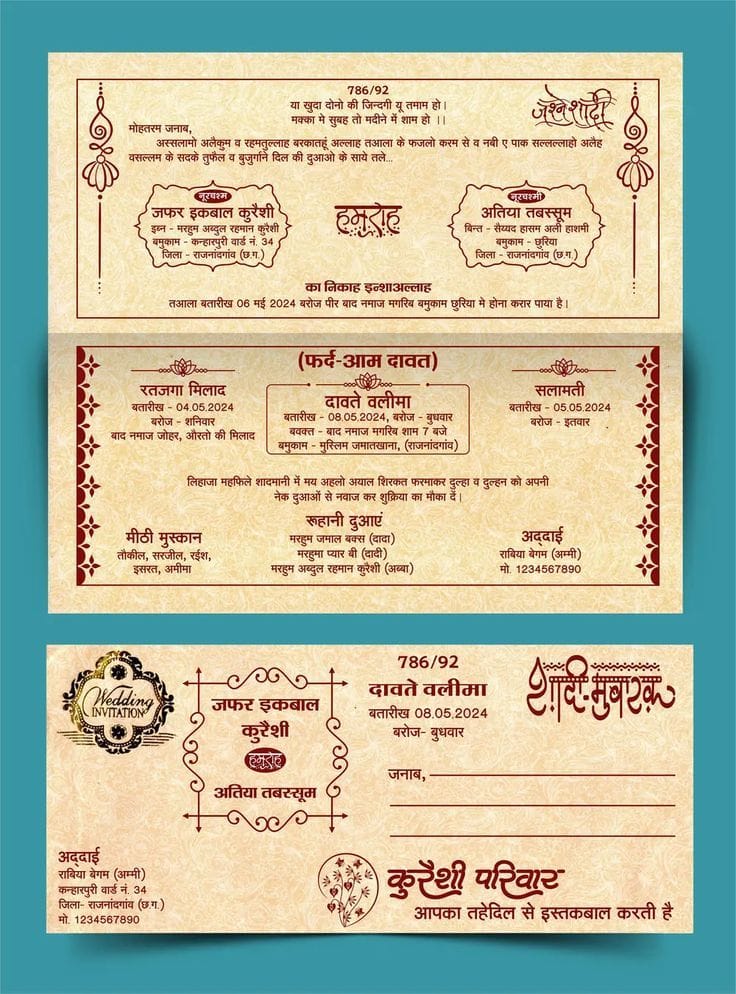 786/92
या खुदा दोनो की जिन्दगी यू तमाम हो।
मक्का मे सुबह तो मदीने में शाम हो ।।
जश्ने शादी
मोहतरम जनाब,
अस्सलामो अलैकुम व रहमतुल्लाह बरकातहूं अल्लाह तआला के फजलो करम से व नबी ए पाक सल्लल्लाहो अलैह
वसल्लम के सदके तुफैल व बुजुर्गाने दिल की दुआओ के साये तले...
नूरचश्म
जफर इकबाल कुरैशी
इब्न - मरहुम अब्दुल रहमान कुरैशी
बमुकाम - कन्हारपुरी वार्ड नं. 34
जिला - राजनांदगांव (छ.ग.)
हमराह
नूरचश्मी
अतिया तबस्सूम
बिन्त - सैय्यद हासम अली हाशमी
बमुकाम - छुरिया
जिला - राजनांदगांव (छ.ग.)
का निकाह इन्शाअल्लाह
तआला बतारीख 06 मई 2024 बरोज पीर बाद नमाज मगरिब बमुकाम छुरिया मे होना करार पाया है।
(फर्द-आम दावत)
रतजगा मिलाद
बतारीख - 04.05.2024
बरोज - शनिवार
बाद नमाज जोहर, औरतो की मिलाद
दावते वलीमा
बतारीख - 08.05.2024, बरोज - बुधवार
बवक्त - बाद नमाज मगरिब शाम 7 बजे
बमुकाम - मुस्लिम जमातखाना, (राजनांदगांव)
सलामती
बतारीख - 05.05.2024
बरोज - इतवार
लिहाजा महफिले शादमानी में मय अहलो अयाल शिरकत फरमाकर दुल्हा व दुल्हन को अपनी
नेक दुआओं से नवाज कर शुक्रिया का मौका दें।
मीठी मुस्कान
तौकील, सरजील, रईश,
इसरत, अमीमा
रूहानी दुआएं
मरहुम जमाल बक्स (दादा)
मरहुमा प्यार बी (दादी)
मरहुम अब्दुल रहमान कुरैशी (अब्बा)
अद्दाई
राबिया बेगम (अम्मी)
मो. 1234567890
Wedding
INVITATION
जफर इकबाल
कुरैशी
हमराह
अतिया तबस्सूम
786/92
दावते वलीमा
बतारीख 08.05.2024
बरोज- बुधवार
शादी-मुबारक
जनाब,
अद्दाई
राबिया बेगम (अम्मी)
कन्हारपुरी वार्ड नं. 34
जिला- राजनांदगांव (छ.ग.)
मो. 1234567890
कुरैशी परिवार
आपका तहेदिल से इस्तकबाल करती है